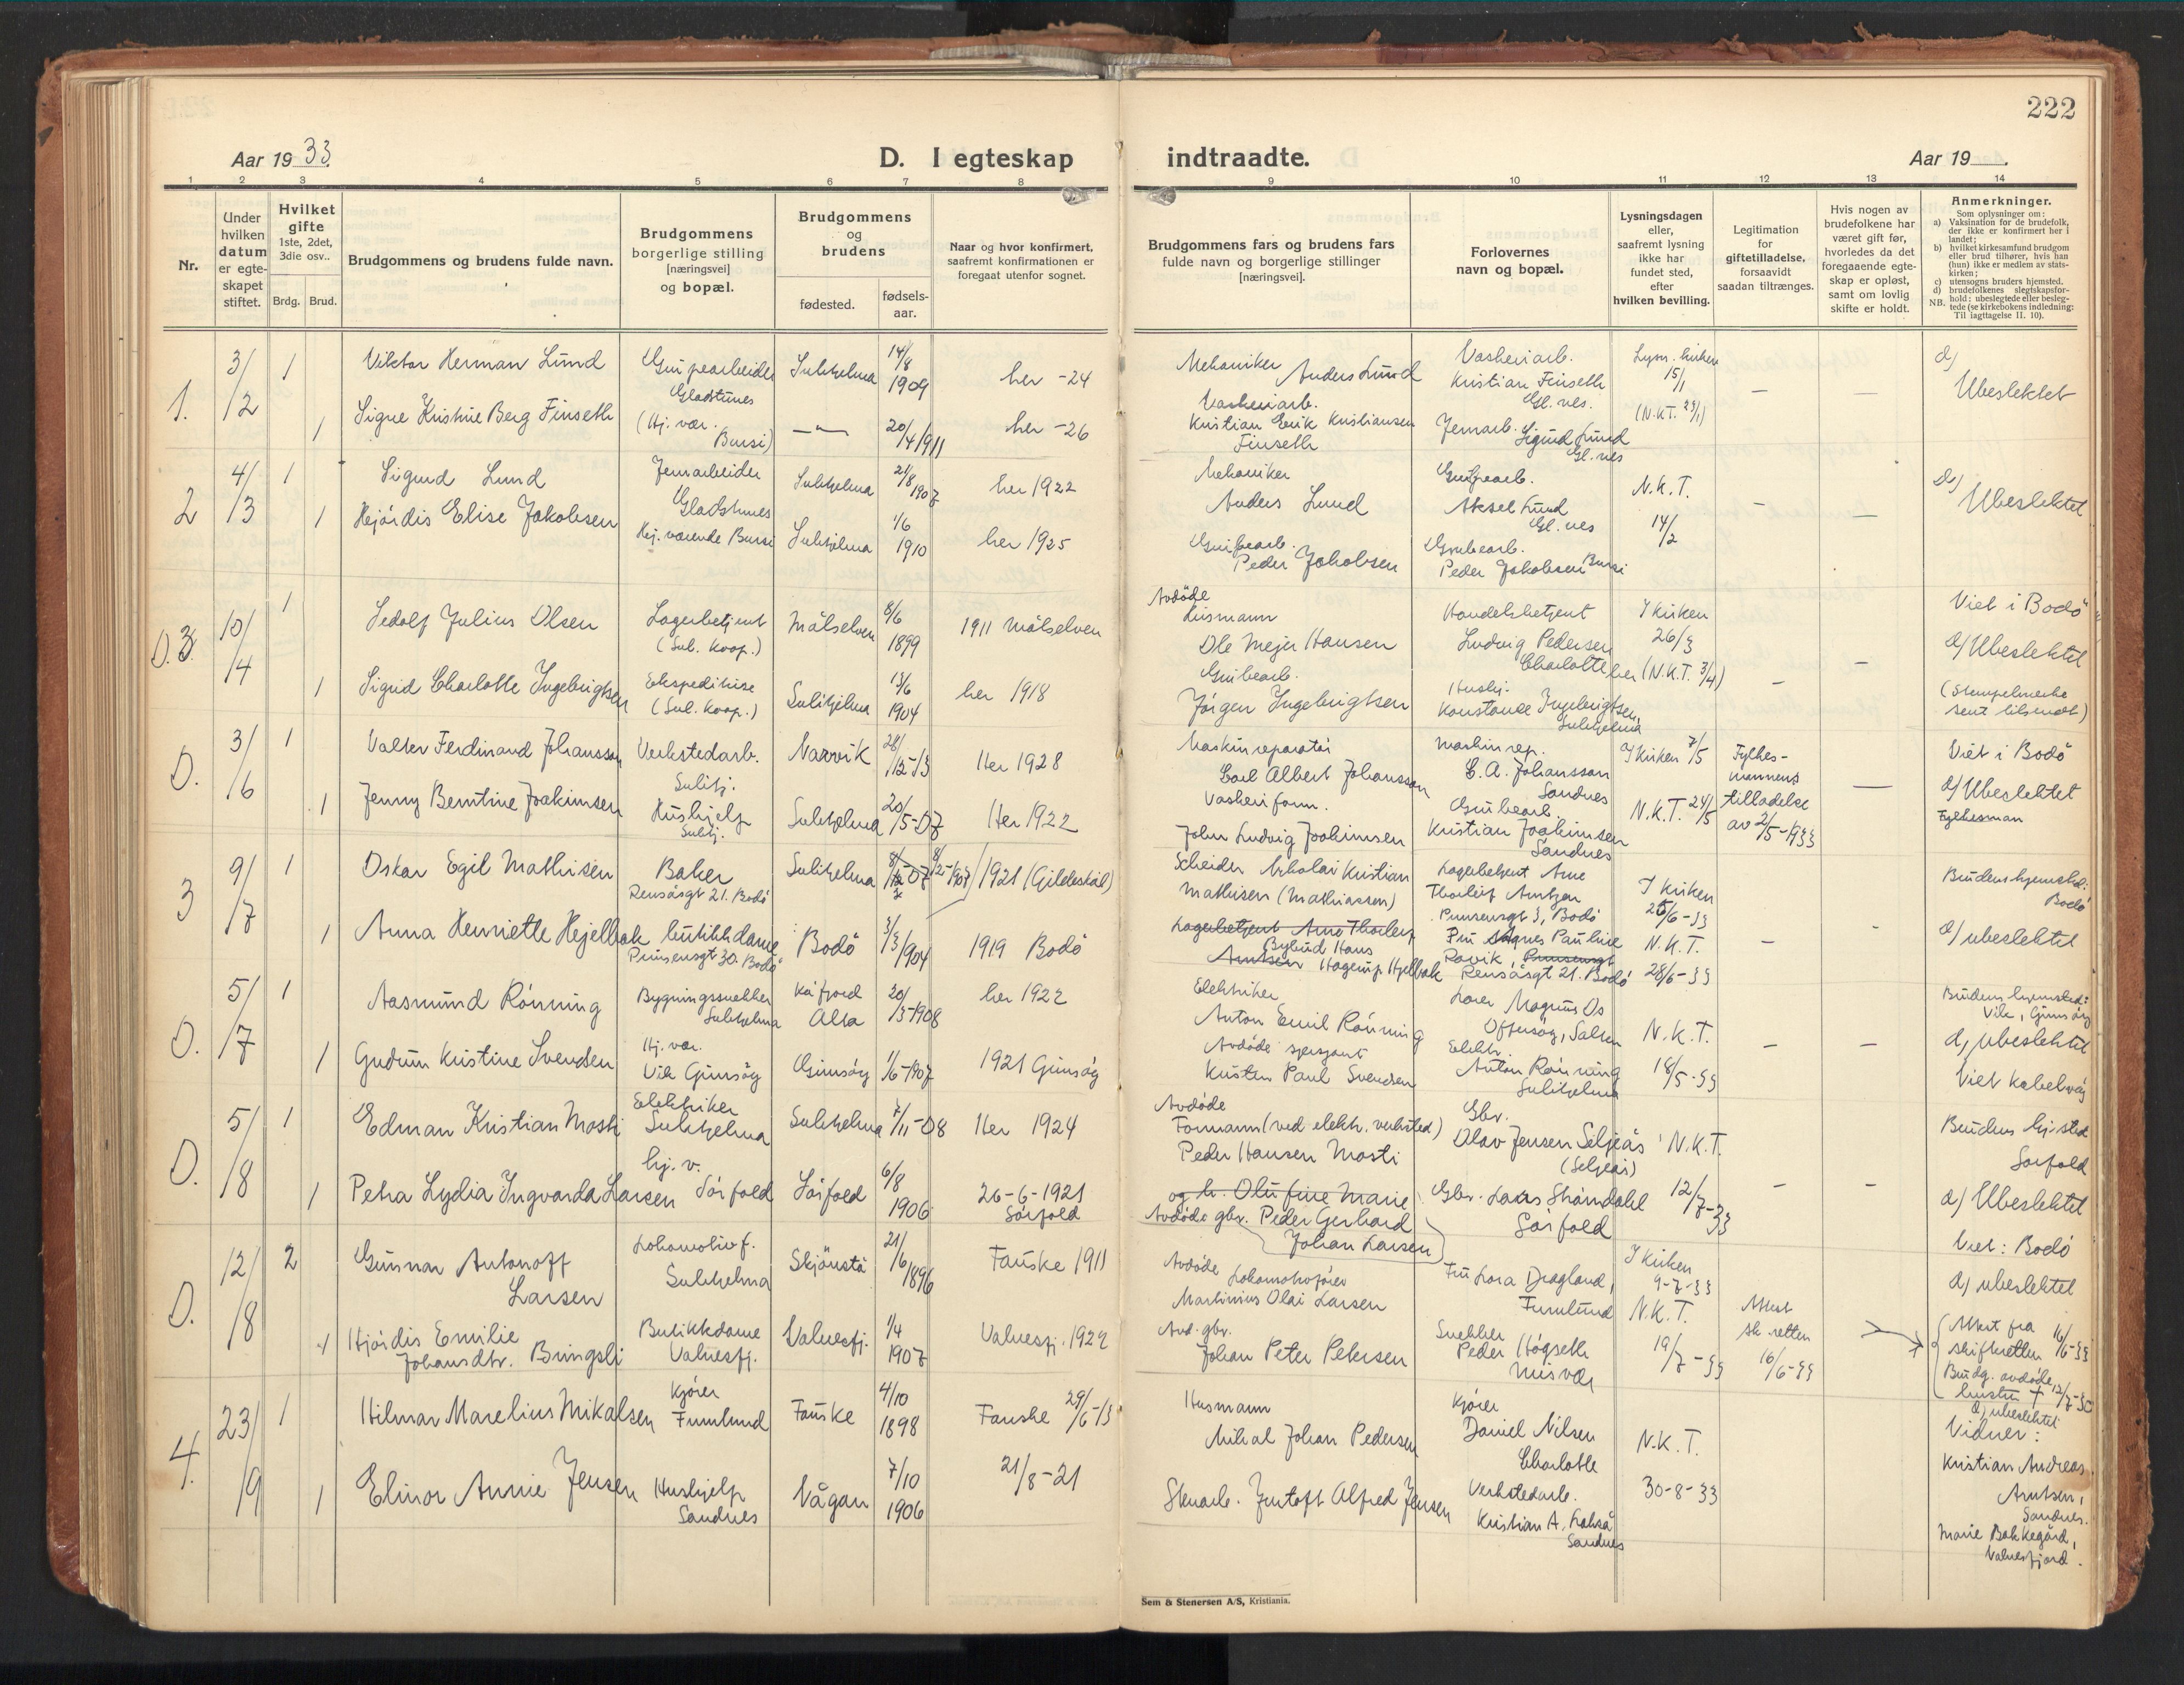 222
Aar 19 33.
D. I egteskap
indtraadte.
Aar 19 .
1 2 3 4 5 6 7 8 9 10 11 12 13 14
Nr.
Under hvilken datum er egteskapet stiftet.
Hvilket gifte
1ste, 2det, 3die osv..
Brdg. Brud.
Brudgommens og brudens fulde navn.
Brudgommens borgerlige stilling [næringsvei] og bopæl.
Brudgommens og brudens
fødested.
fødsels-aar.
Naar og hvor konfirmert, saafremt konfirmationen er foregaat utenfor sognet.
Brudgommens fars og brudens fars fulde navn og borgerlige stillinger [næringsvei].
Forlovernes navn og bopæl.
Lysningsdagen eller, saafremt lysning ikke har fundet sted, efter hvilken bevilling.
Legitimation for giftetilladelse, forsaavidt saadan tiltrænges.
Hvis nogen av brudefolkene har været gift før, hvorledes da det foregaaende egteskap er opløst, samt om lovlig skifte er holdt.
Anmerkninger.
Som oplysninger om:
a) Vaksination for de brudefolk, der ikke er konfirmert her i landet;
b) hvilket kirkesamfund brudgom eller brud tilhører, hvis han (hun) ikke er medlem av statskirken;
c) utensogns bruders hjemsted.
d) brudefolkenes slegtskapsforhold: ubeslegtede eller beslegtede (se kirkebokens indledning:
NB. Til iagttagelse II. 10).
1. 3/2 1 Viktor Herman Lund
Grubearbeider Gladstunes
Sulitjelma 14/8 1909
her -24
Mekaniker Anders Lund
Vaskeriarb. Kristian Finseth Gl.nes.
Lysn. kirken 15/1 (N.K.T. 23/1)
d) Ubeslektet
1 Signe Kristine Berg Finseth
(Hj. vær. Bursi)
20/4 1911
her -26
Vaskeriarb. Kristian Erik Kristiansen Finseth
Jernarb. Sigurd Lund Gl.nes
2 4/3 1 Sigurd Lund
Jernarbeider Gladstunes
Sulitjelma 21/8 1907
her 1922
Mekaniker Anders Lund
Grubearb. Aksel Lund Gl.nes
N.K.T. 14/2
d) Ubeslektet
1 Hjördis Elise Jakobsen
Hj. værende Bursi
Sulitjelma 1/6 1910
her 1925
Grubearb. Peder Jakobsen
Grubearb. Peder Jakobsen Bursi
D.3. 10/4 1 Sedolf Julius Olsen
Lagerbetjent (Sul. Koop.)
Målselven 8/6 1899
1911 Målselven
Avdøde Lensmann Ole Mejer Hansen
Handelsbetjent Ludvig Pedersen Charlotte
I kirken 26/3 her (N.K.T. 3/4)
Viet i Bodö
d/ Ubeslektet
(Stempelmerke sent tilsendt)
1 Sigrid Charlotte Ingebrigtsen
Ekspeditrise (Sul. Koop.)
Sulitjelma 13/6 1904
her 1918
Grubearb. Jörgen Ingebrigtsen
Hushj. Konstanse Ingebrigtsen, Sulitjelma
D. 3/6 1 Valter Ferdinand Johansson
Verkstedarb. Sulitj.
Narvik 28/12-13
Her 1928
Maskinreparatör Carl Albert Johansson
Maskinrep. C.A. Johansson Sandnes
I kirken 7/5
Fylkesmannens tilladelse av 2/5-1933
Viet i Bodö
d/ Ubeslektet
Fylkesman
1 Jenny Berntine Joakimsen
Hushjelp Sulitj.
Sulitjelma 20/5-07
Her 1922
Vaskeriform. John Ludvig Joakimsen
Grubearb. Kristian Joakimsen Sandnes
N.K.T. 24/5
3 9/7 1 Oskar Egil Mathisen
Baker Rensåsgt 21. Bodö
Sulitjelma 8/12-07
1921 (Gildeskål)
Scheider Nikolai Kristian Mathisen (Mathiassen)
Lagerbetjent Arne Thorleif Arntzen Prinsensgt 3, Bodö
I kirken 25/6-33
Brudens hjemsted: Bodö
d/ ubeslektet
1 Anna Henriette Hejelbak
butikkdame Prinsensgt 30. Bodö
Bodö 3/3 1904
1919 Bodö
Lagerbetjent Arne Thorleif Arntsen
Bybud Hans Hagerup Hjelbak
Fru Agnes Pauline Ravik Prinsensgt Rensåsgt 21. Bodö
N.K.T. 28/6-33
D. 5/7 1 Aasmund Rönning
Bygningssnekker Sulitjelma
Kåfjord Alta 20/3-1908
her 1922
Elektriker Anton Emil Rönning
Lærer Magnus Os Offersöy, Salten
N.K.T. 18/5-33
Brudens hjemsted: Vik, Gimsöy
d, ubeslektet
Viet Kabelvåg
1 Gudrun Kristine Svendsen
Hj. vær. Vik Gimsöy
Gimsöy 1/6-1907
1921 Gimsöy
Avdöde sersjant Kristen Paul Svendsen
Elektr. Anton Rönning Sulitjelma
D. 5/8 1 Edman Kristian Mosti
Elektriker Sulitjelma
Sulitjelma 7/11-08
Her 1924
Avdöde Formann (ved elektr. verksted) Peder Hansen Mosti
Gbr. Olav Jensen Seljeås (Seljeås)
N.K.T. 12/7-33
Brudens hj.sted Sörfold
d) Ubeslektet
1 Petra Lydia Ingvarda Larsen
hj. v. Sörfold
Sörfold 6/8 1906
26-6-1921 Sörfold
og h. Olufine Marie
Avdöde gbr. Peder Gerhard Johan Larsen
Gbr. Lars Strömdahl Sörfold
D. 12/8 2 Gunnar Antonoff Larsen
Lokomotivf. Sulitjelma
Skjönstå 21/6 1896
Fauske 1911
Avdöde Lokomotivförer Martinius Olai Larsen
Fru Lora Dragland, Furulund
I kirken 9-7-33
N.K.T. 19/7-33
Attest sk. retten 16/6-33
Viet: Bodö
d) ubeslektet
Attest fra skifteretten 16/6-33
Brudg. avdöde hustru † 12/7-30
d, ubeslektet
1 Hjördis Emilie Johansdtr. Bringsli
Butikkdame Valnesfj.
Valnesfj. 1/4 1907
Valnesfj. 1922
Avd. gbr. Johan Peter Petersen
Snekker Peder Högseth Misvær
4. 23/9 1 Hilmar Marelius Mikalsen
Kjörer Furulund
Fauske 4/10 1898
Fauske 29/6-13
Husmann Mikal Johan Pedersen
Kjörer Daniel Nilsen Charlotte
N.K.T. 30-8-33
Vidner:
Kristian Andreas Arntsen, Sandnes.
Marie Bakkegård, Valnesfjord.
1 Elinor Annie Jensen
Hushjelp Sandnes
Vågan 7/10 1906
21/8-21
Stenarb. Jentoft Alfred Jensen
Verkstedarb. Kristian A. Lakså Sandnes
Sem & Stenersen A/S, Kristiania.